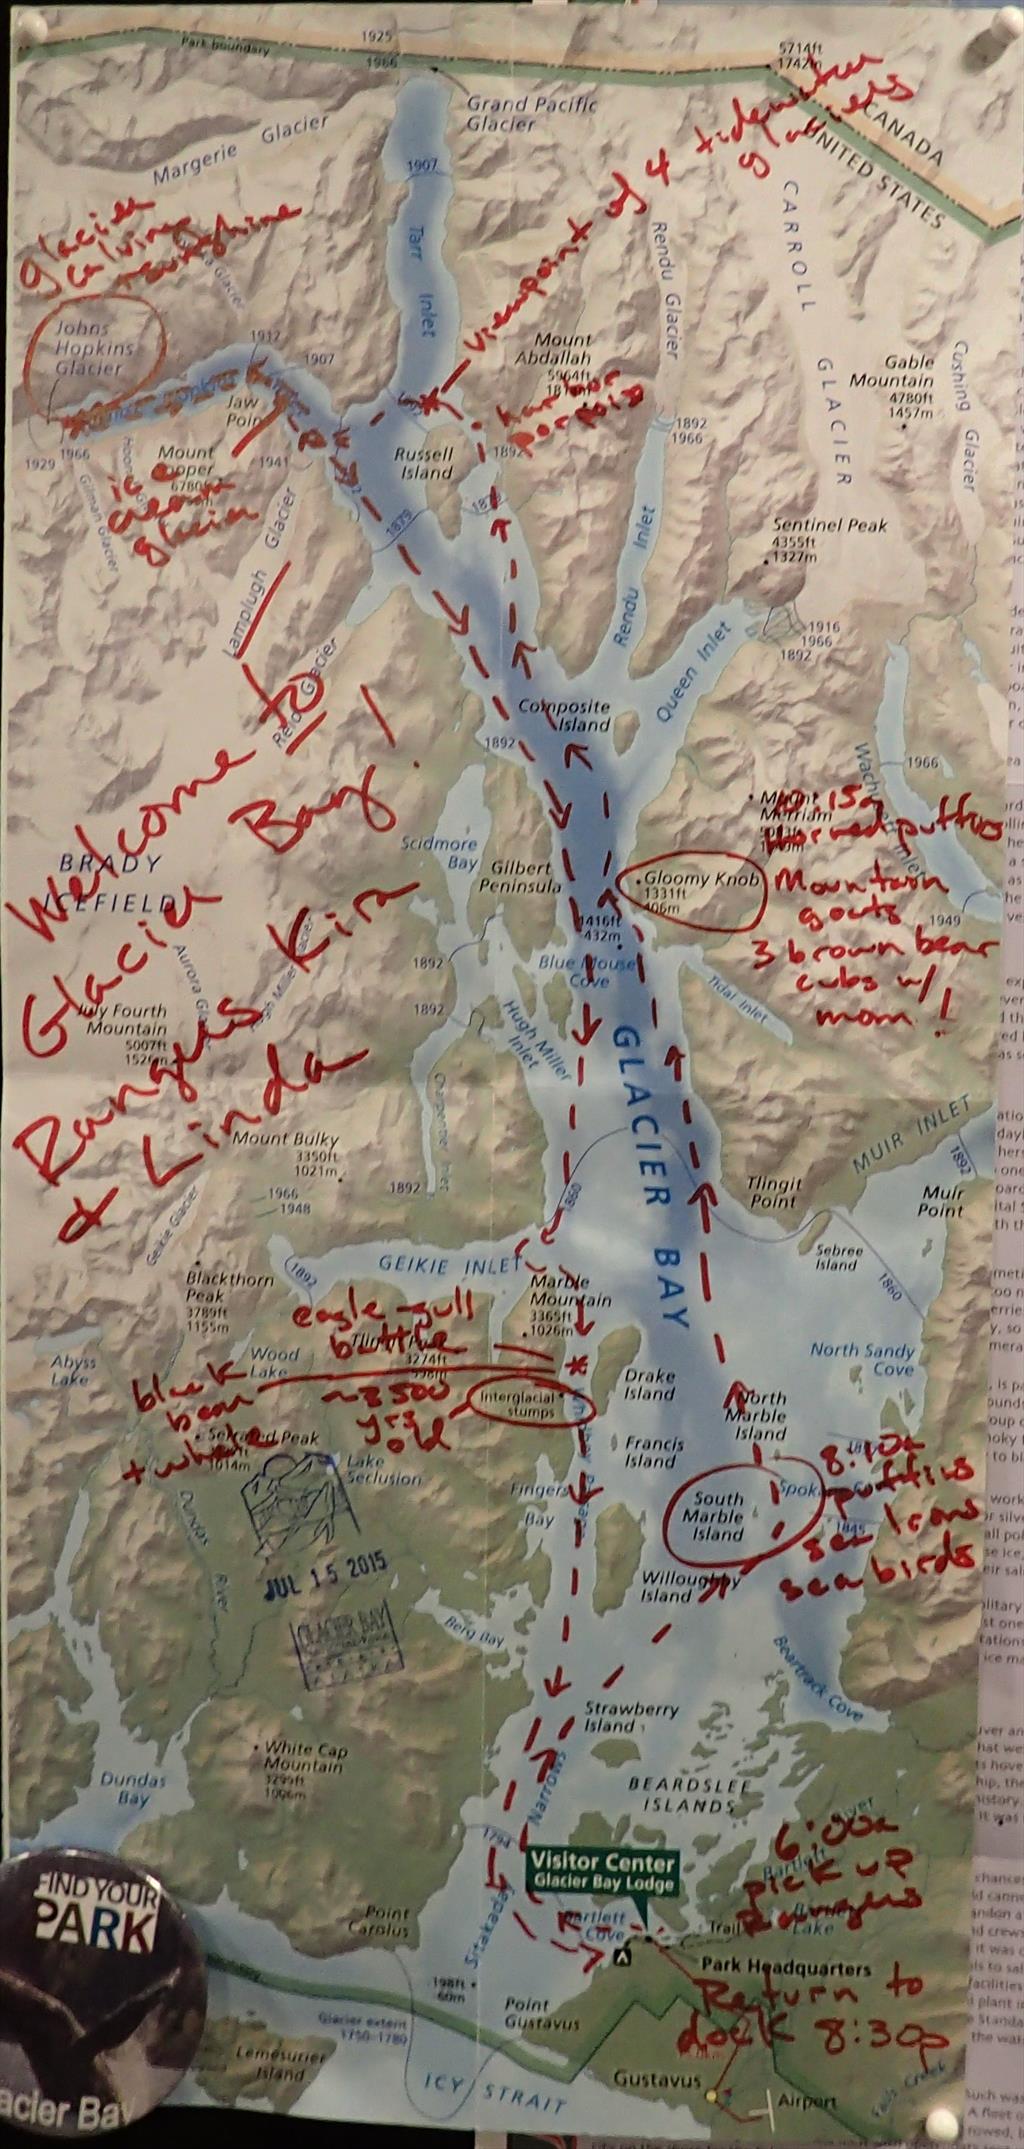 1925
Park boundary
1966
5714ft
1742m
Grand Pacific
Glacier
CANADA
UNITED STATES
Margerie Glacier
1907
Tarr Inlet
viewpoint of 4 tidewater
glaciers
CARROLL GLACIER
Rendu Glacier
glacier
calving
Johns
Hopkins
Glacier
1912
1907
Mount
Abdallah
5964ft
harbor
porpoise
Gable
Mountain
4780ft
1457m
Cushing Glacier
Jaw
Point
1966
1929
1941
Mount
Cooper
ice
cream
glacier
Gilman Glacier
Lamplugh Glacier
Russell
Island
1892
1892
1966
1879
Sentinel Peak
4355ft
1327m
Rendu Inlet
Queen Inlet
1916
1966
1892
Reid Glacier
Composite
Island
1892
1966
Welcome to
Glacier Bay!
Rangers Kira
& Linda
BRADY
ICEFIELD
Scidmore
Bay
Gilbert
Peninsula
Mount
Merriam
horned puffins
Gloomy Knob
1331ft
406m
mountain
goats
3 brown bear
cubs w/
mom!
1949
1416ft
432m
Blue Mouse
Cove
Tidal Inlet
1892
1892
Hugh Miller
Inlet
July Fourth
Mountain
5007ft
GLACIER BAY
Mount Bulky
3350ft
1021m
1966
1948
1892
Geikie Glacier
1860
MUIR INLET
1892
Tlingit
Point
Muir
Point
Sebree
Island
1860
GEIKIE INLET
1892
Blackthorn
Peak
3789ft
1155m
Marble
Mountain
3365ft
1026m
eagle-gull
battle
3274ft
Abyss
Lake
Wood
Lake
black
bear
+ whale
~3500
yrs
old
Interglacial
stumps
Drake
Island
North Sandy
Cove
North
Marble
Island
Francis
Island
Lake
Seclusion
1014m
Fingers
Bay
South
Marble
Island
8:10a
puffins
sea lions
sea birds
1845
JUL 15 2015
GLACIER BAY
Willoughby
Island
Dundas River
Berg Bay
Beartrack Cove
Strawberry
Island
White Cap
Mountain
Dundas
Bay
BEARDSLEE
ISLANDS
1794
Sitakaday Narrows
Visitor Center
Glacier Bay Lodge
6:00a
pick up
rangers
Bartlett
Cove
Bartlett
Lake
Trail
Point
Carolus
Park Headquarters
Return to
dock 8:30p
198ft
60m
Point
Gustavus
Glacier extent
1750-1780
Lemesurier
Island
ICY STRAIT
Gustavus
Airport
FIND YOUR
PARK
acier Bay